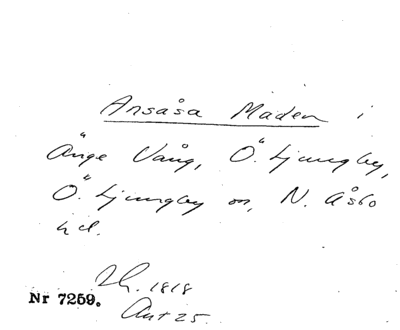 Ansåsa Maden i
Änge Vång, Ö. Ljungby,
Ö. Ljungby sn, N. Åsbo
hd.
Lh. 1818
Nr 7259.
Akt 25.